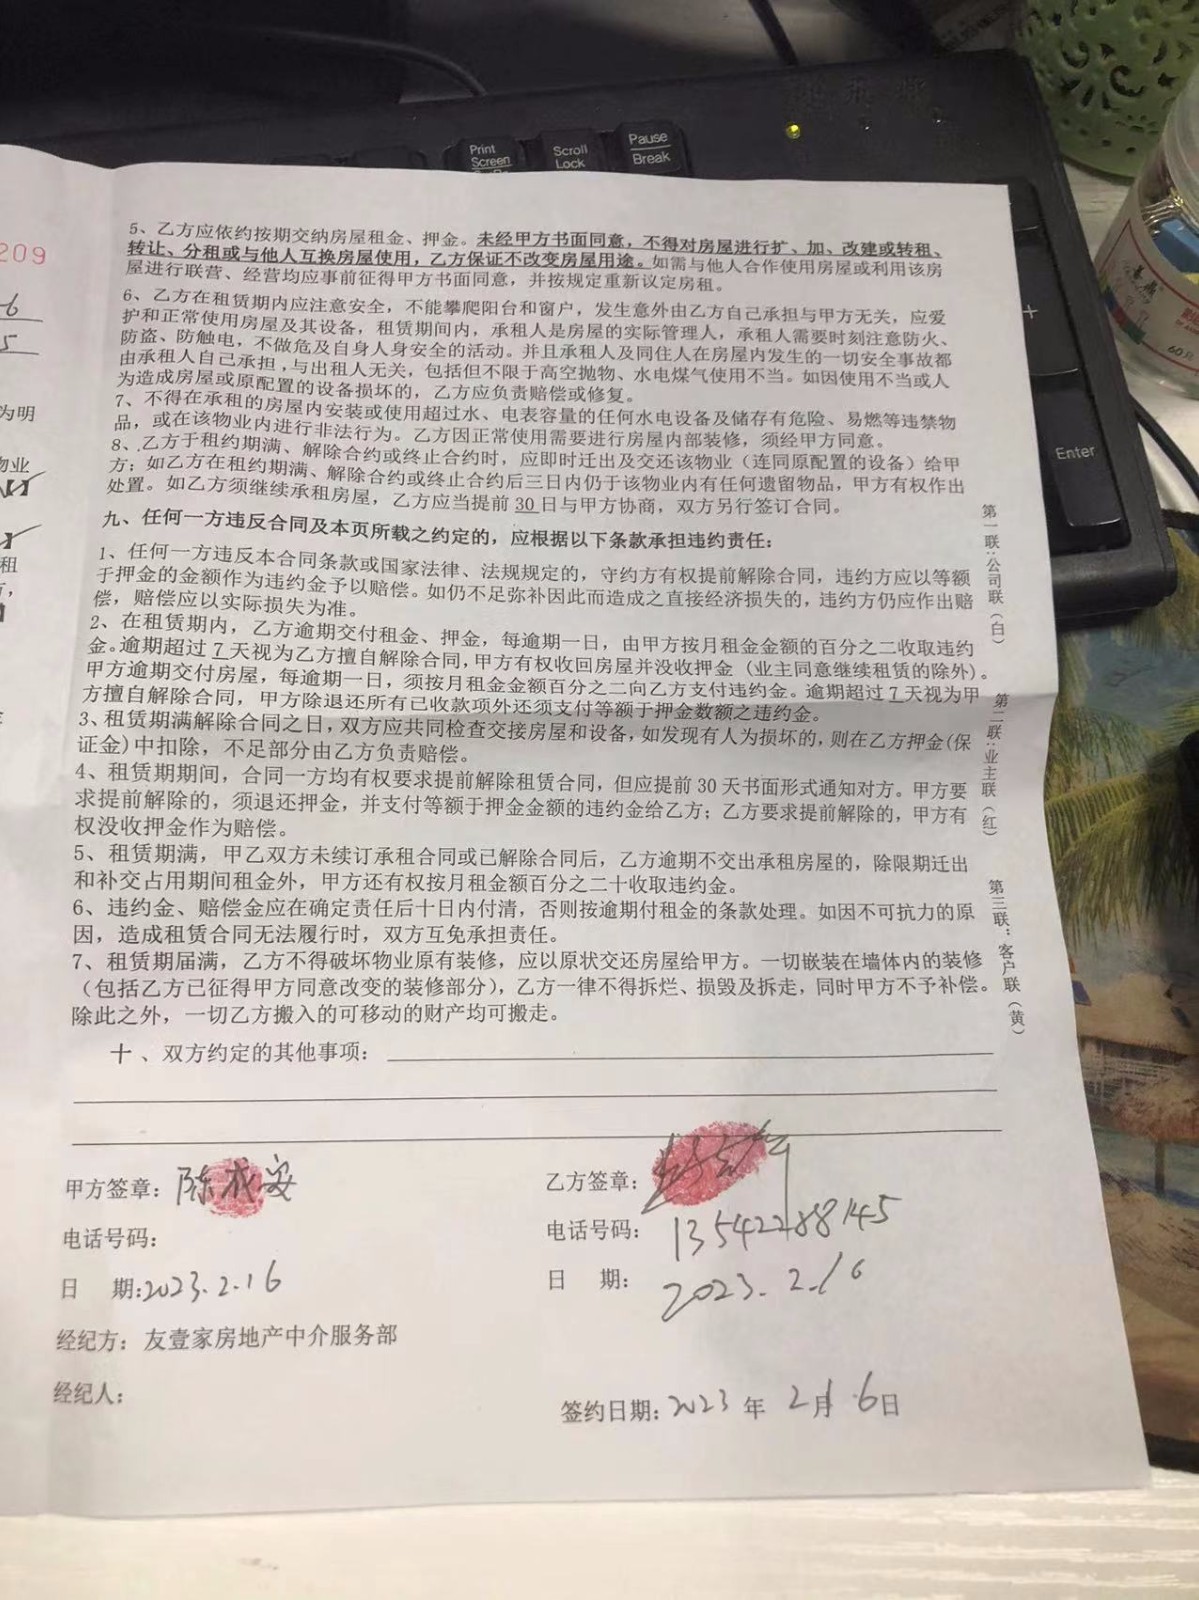 Print
Screen
Scroll
Lock
Pause
Break
+
Enter
209
5、乙方应依约按期交纳房屋租金、押金。未经甲方书面同意，不得对房屋进行扩、加、改建或转租、
转让、分租或与他人互换房屋使用，乙方保证不改变房屋用途。如需与他人合作使用房屋或利用该房
屋进行联营、经营均应事前征得甲方书面同意，并按规定重新议定房租。
6、乙方在租赁期内应注意安全，不能攀爬阳台和窗户，发生意外由乙方自己承担与甲方无关，应爱
护和正常使用房屋及其设备，租赁期间内，承租人是房屋的实际管理人，承租人需要时刻注意防火、
防盗、防触电，不做危及自身人身安全的活动。并且承租人及同住人在房屋内发生的一切安全事故都
由承租人自己承担,与出租人无关，包括但不限于高空抛物、水电煤气使用不当。如因使用不当或人
为造成房屋或原配置的设备损坏的，乙方应负责赔偿或修复。
7、不得在承租的房屋内安装或使用超过水、电表容量的任何水电设备及储存有危险、易燃等违禁物
品，或在该物业内进行非法行为。乙方因正常使用需要进行房屋内部装修，须经甲方同意。
8、乙方于租约期满、解除合约或终止合约时，应即时迁出及交还该物业（连同原配置的设备）给甲
方；如乙方在租约期满、解除合约或终止合约后三日内仍于该物业内有任何遗留物品，甲方有权作出
处置。如乙方须继续承租房屋，乙方应当提前30日与甲方协商，双方另行签订合同。
九、任何一方违反合同及本页所载之约定的，应根据以下条款承担违约责任：
1、任何一方违反本合同条款或国家法律、法规规定的，守约方有权提前解除合同，违约方应以等额
于押金的金额作为违约金予以赔偿。如仍不足弥补因此而造成之直接经济损失的，违约方仍应作出赔
偿，赔偿应以实际损失为准。
2、在租赁期内，乙方逾期交付租金、押金，每逾期一日，由甲方按月租金金额的百分之二收取违约
金。逾期超过7天视为乙方擅自解除合同，甲方有权收回房屋并没收押金（业主同意继续租赁的除外)。
甲方逾期交付房屋，每逾期一日，须按月租金金额百分之二向乙方支付违约金。逾期超过7天视为甲
方擅自解除合同，甲方除退还所有已收款项外还须支付等额于押金数额之违约金。
3、租赁期满解除合同之日，双方应共同检查交接房屋和设备，如发现有人为损坏的，则在乙方押金(保
证金)中扣除，不足部分由乙方负责赔偿。
4、租赁期期间，合同一方均有权要求提前解除租赁合同，但应提前30天书面形式通知对方。甲方要
求提前解除的，须退还押金，并支付等额于押金金额的违约金给乙方；乙方要求提前解除的，甲方有
权没收押金作为赔偿。
5、租赁期满，甲乙双方未续订承租合同或已解除合同后，乙方逾期不交出承租房屋的，除限期迁出
和补交占用期间租金外，甲方还有权按月租金额百分之二十收取违约金。
6、违约金、赔偿金应在确定责任后十日内付清，否则按逾期付租金的条款处理。如因不可抗力的原
因，造成租赁合同无法履行时，双方互免承担责任。
7、租赁期届满，乙方不得破坏物业原有装修，应以原状交还房屋给甲方。一切嵌装在墙体内的装修
（包括乙方已征得甲方同意改变的装修部分），乙方一律不得拆烂、损毁及拆走，同时甲方不予补偿。
除此之外，一切乙方搬入的可移动的财产均可搬走。
十、双方约定的其他事项：
甲方签章：陈成安
电话号码：
日 期:2023.2.16
经纪方：友壹家房地产中介服务部
经纪人：
乙方签章：
电话号码：13542288145
日 期：2023.2.16
签约日期:2023年2月6日
第一联：公司联（白）
第二联：业主联（红）
第三联：客户联（黄）
为明
物业
租